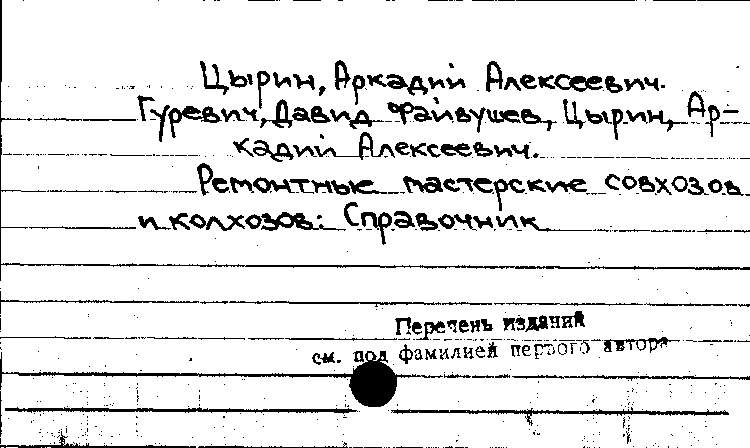 Цырин, Аркадий Алексеевич.
Гуревич, Давид Файвушев, Цырин, Ар-
кадий Алексеевич.
Ремонтные мастерские совхозов
и колхозов: Справочник
Перечень изданий
см. под фамилией первого автора